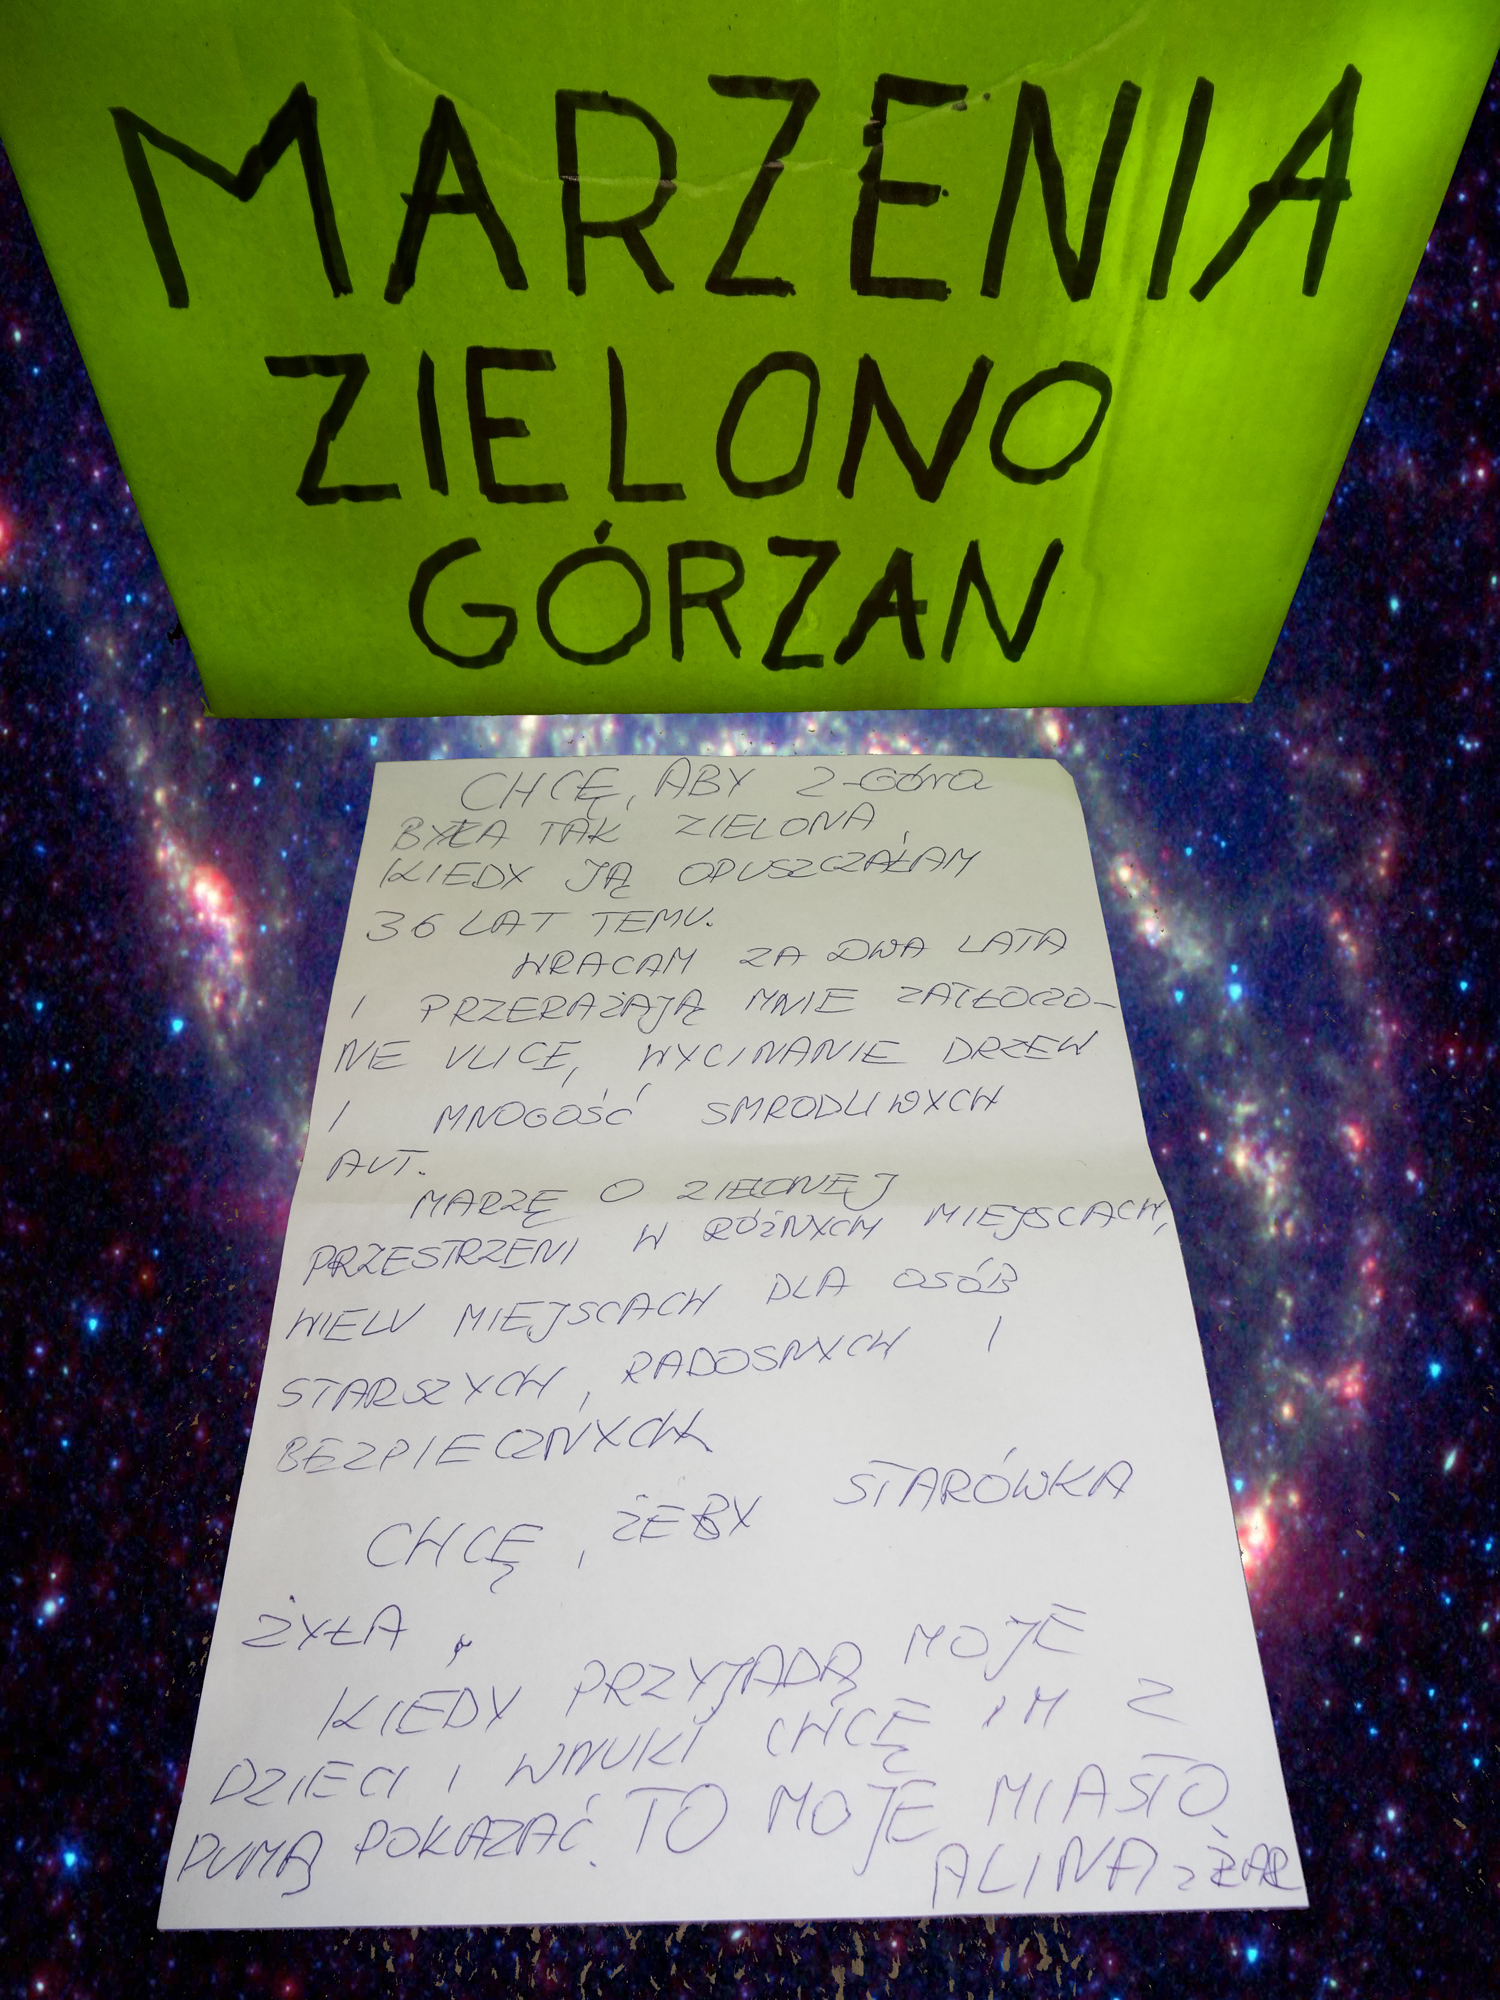 MARZENIA
ZIELONO
GÓRZAN
CHCĘ, ABY Z-Góra
BYŁA TAK ZIELONA,
KIEDY JĄ OPUSZCZAŁAM
36 LAT TEMU.
WRACAM ZA DWA LATA
I PRZERAŻAJĄ MNIE ZATŁOCZO-
NE ULICE, WYCINANIE DRZEW
I MNOGOŚĆ SMRODLIWYCH
AUT.
MARZĘ O ZIELONEJ
PRZESTRZENI W RÓŻNYCH MIEJSCACH,
WIELU MIEJSCACH DLA OSÓB
STARSZYCH, RADOSNYCH I
BEZPIECZNYCH
CHCĘ, ŻEBY STARÓWKA
ŻYŁA,
KIEDY PRZYJADĄ MOJE
DZIECI I WNUKI CHCĘ IM Z
DUMĄ POKAZAĆ. TO MOJE MIASTO
ALINA z ŻAR